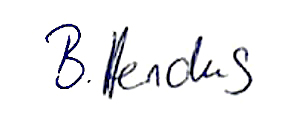 B. Hendus